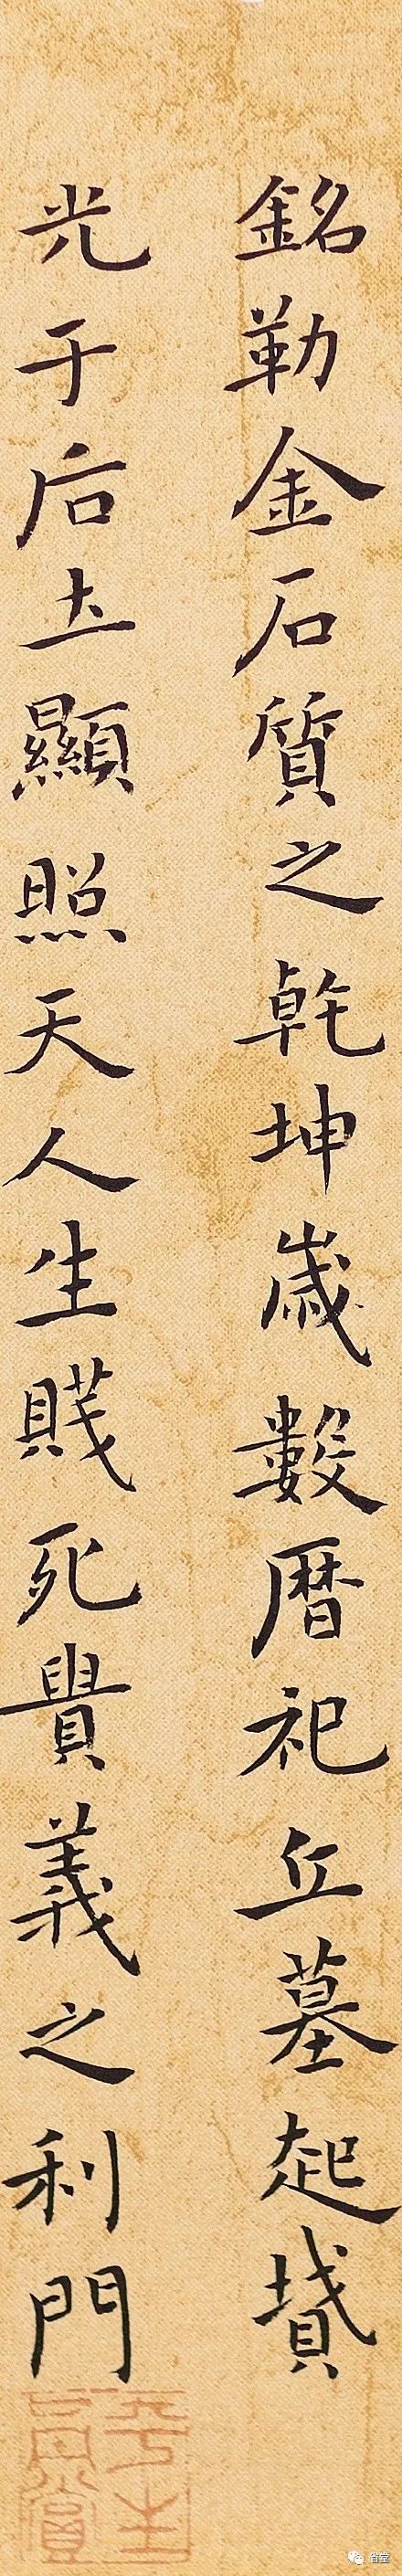 銘勒金石質之乾坤歲數曆祀丘墓起墳
光于后土顯照天人生賤死貴義之利門
平生真賞